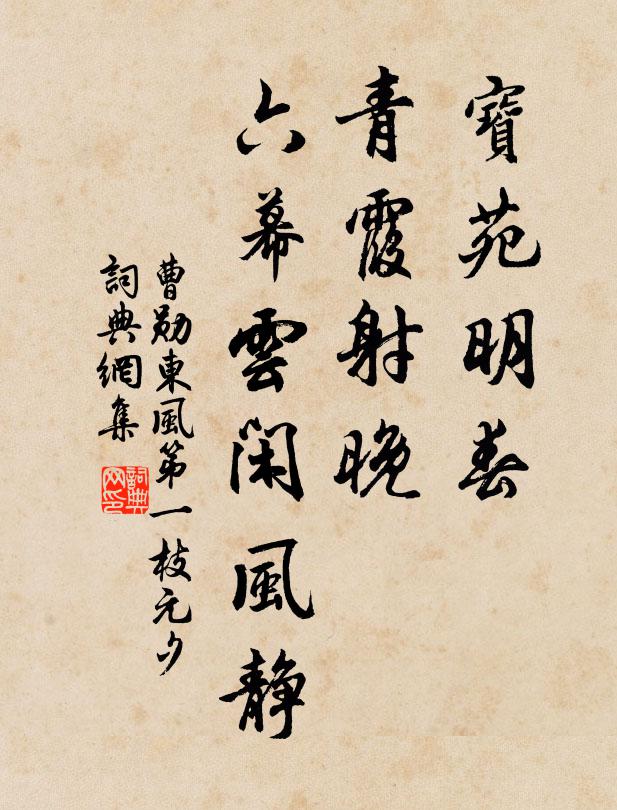 寶苑明春
青霞射晚
六幕雲閑風靜
曹勛東風第一枝元夕
詞典網集
詞典
网印